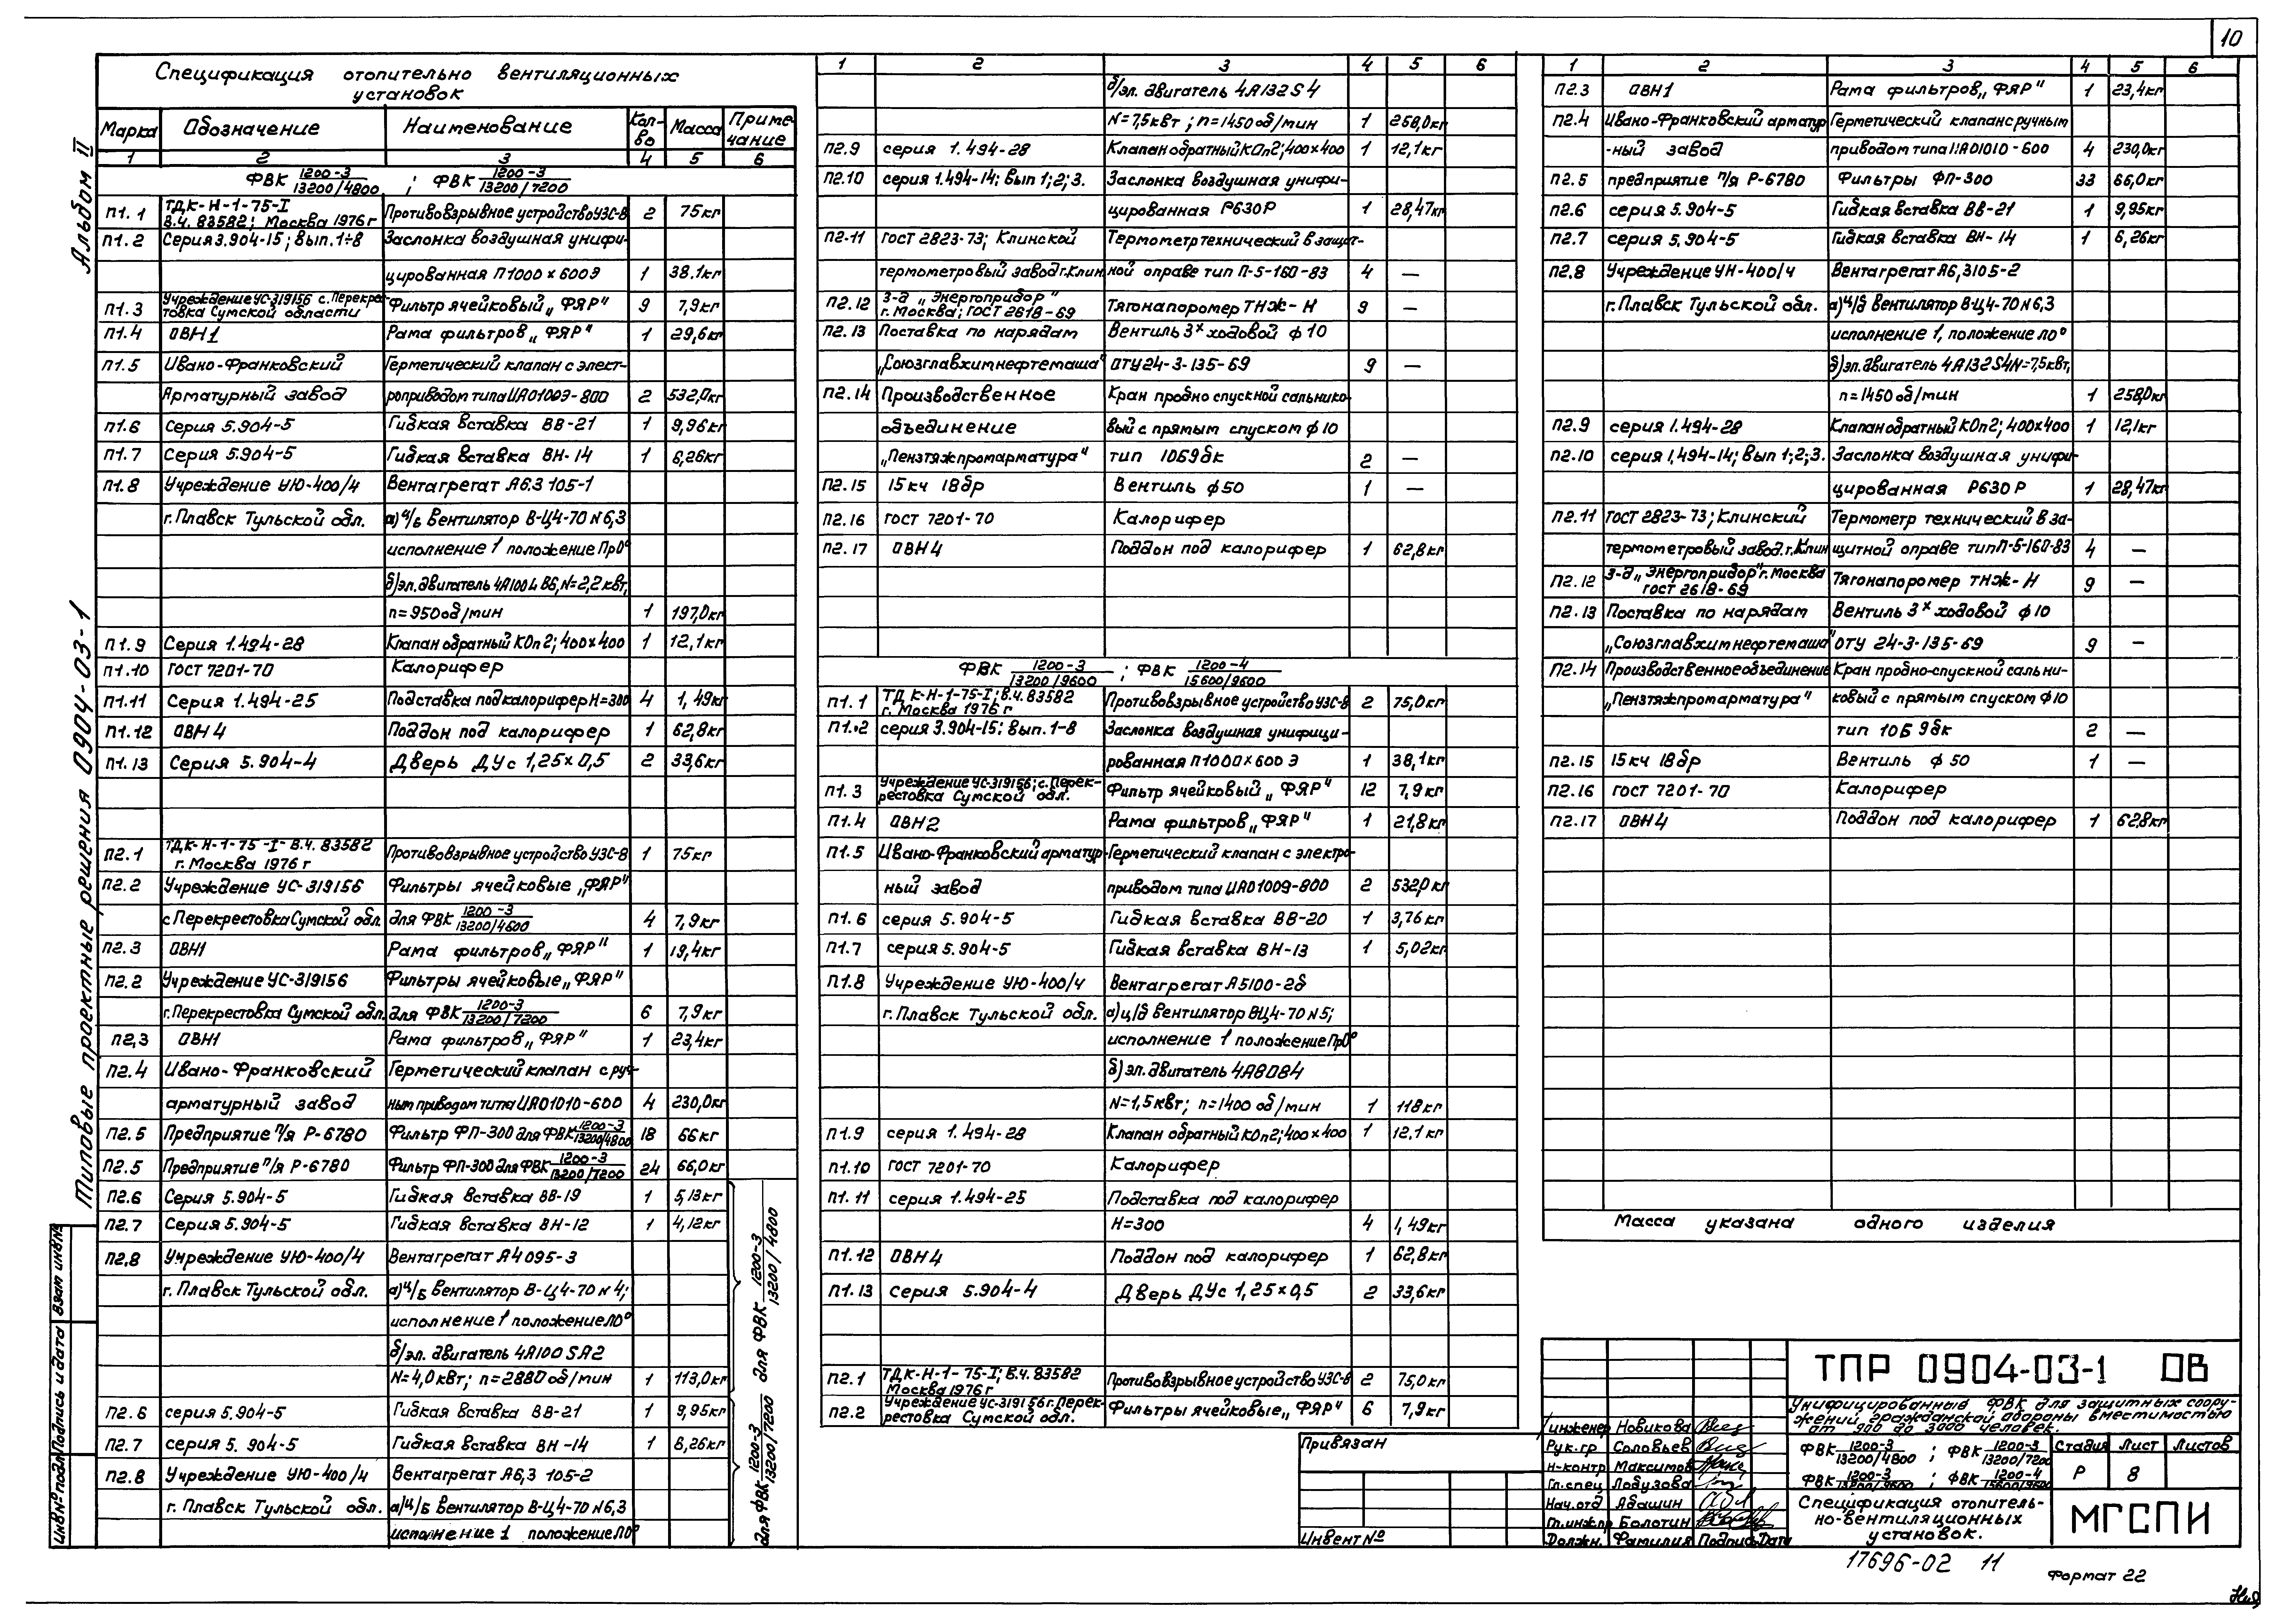 10
Альбом II
Типовые проектные решения 0904-03-1
Спецификация отопительно вентиляционных
установок
Марка Обозначение Наименование Кол-во Масса Примечание
1 2 3 4 5 6
ФВК 1200-3/13200/4800 ; ФВК 1200-3/13200/7200
П1.1 ТДК-Н-1-75-I В.Ч. 83582; Москва 1976г Противовзрывное устройство УЗС-8 2 75кг
П1.2 Серия 3.904-15; Вып. 1÷8 Заслонка воздушная унифи-
цированная П1000х600Э 1 38.1кг
П1.3 Учреждение УС-319156 с. Перекрес-товка Сумской области Фильтр ячейковый „ФЯР" 9 7,9кг
П1.4 ОВН1 Рама фильтров „ФЯР" 1 29,6кг
П1.5 Ивано-Франковский Герметический клапан с элект-
Арматурный завод роприводом типа ИА01009-800 2 532,0кг
П1.6 Серия 5.904-5 Гибкая вставка ВВ-21 1 9,96кг
П1.7 Серия 5.904-5 Гибкая вставка ВН-14 1 6,26кг
П1.8 Учреждение УЮ-400/4 Вентагрегат А6.3 105-1
г. Плавск Тульской обл. а) ц/б вентилятор В-Ц4-70 N6,3
исполнение 1 положение Пр0°
б) эл. двигатель 4А100L В6, N=2,2 кВт,
n=950 об/мин 1 197,0кг
П1.9 Серия 1.494-28 Клапан обратный КОп2; 400х400 1 12,1кг
П1.10 ГОСТ 7201-70 Калорифер
П1.11 Серия 1.494-25 Подставка под калорифер Н=300 4 1,49кг
П1.12 ОВН4 Поддон под калорифер 1 62,8кг
П1.13 Серия 5.904-4 Дверь ДУс 1,25х0,5 2 33,6кг
П2.1 ТДК-Н-1-75-I- В.Ч. 83582 г. Москва 1976 г Противовзрывное устройство УЗС-8 1 75кг
П2.2 Учреждение УС-319156 Фильтры ячейковые „ФЯР"
с Перекрестовка Сумской обл. для ФВК 1200-3/13200/4800 4 7,9кг
П2.3 ОВН1 Рама фильтров „ФЯР" 1 19,4кг
П2.2 Учреждение УС-319156 Фильтры ячейковые „ФЯР"
г. Перекрестовка Сумской обл. для ФВК 1200-3/13200/7200 6 7,9кг
П2,3 ОВН1 Рама фильтров „ФЯР" 1 23,4кг
П2.4 Ивано-Франковский Герметический клапан с руч-
арматурный завод ным приводом типа ИА01010-600 4 230,0кг
П2.5 Предприятие п/я Р-6780 Фильтр ФП-300 для ФВК 1200-3/13200/4800 18 66кг
П2.5 Предприятие п/я Р-6780 Фильтр ФП-300 для ФВК 1200-3/13200/7200 24 66,0кг
П2.6 Серия 5.904-5 Гибкая вставка ВВ-19 1 5,13кг
П2.7 Серия 5.904-5 Гибкая вставка ВН-12 1 4,12кг
П2.8 Учреждение УЮ-400/4 Вентагрегат А4 095-3
г. Плавск Тульской обл. а) ц/б вентилятор В-Ц4-70 N 4;
исполнение 1 положение Л0°
б) эл. двигатель 4А100 SА2
N=4,0 кВт; n=2880 об/мин 1 113,0кг
для ФВК 1200-3/13200/4800
П2.6 серия 5.904-5 Гибкая вставка ВВ-21 1 9,95кг
П2.7 серия 5.904-5 Гибкая вставка ВН-14 1 6,26кг
П2.8 Учреждение УЮ-400/4 Вентагрегат А6,3 105-2
г. Плавск Тульской обл. а) ц/б вентилятор В-Ц4-70 N6,3
исполнение 1 положение Л0°
для ФВК 1200-3/13200/7200
1 2 3 4 5 6
б/эл. двигатель 4А132S4
N=7,5кВт; n=1450 об/мин 1 258,0кг
П2.9 серия 1.494-28 Клапан обратный КОп2; 400х400 1 12,1кг
П2.10 серия 1.494-14; Вып 1;2;3. Заслонка воздушная унифи-
цированная Р630Р 1 28,47кг
П2.11 ГОСТ 2823-73; Клинской Термометр технический в защит-
термометровый завод г. Клин ной оправе тип П-5-160-83 4 —
П2.12 З-д „Энергоприбор" г. Москва; ГОСТ 2618-69 Тягонапоромер ТНЖ-Н 9 —
П2.13 Поставка по нарядам Вентиль 3х ходовой ф 10
„Союзглавхимнефтемаша" ОТУ24-3-135-69 9 —
П2.14 Производственное Кран пробно спускной сальнико-
объединение вый с прямым спуском ф 10
„Пензтяжпромарматура" тип 10Б9бк 2 —
П2.15 15кч 18бр Вентиль ф50 1 —
П2.16 ГОСТ 7201-70 Калорифер
П2.17 ОВН4 Поддон под калорифер 1 62,8кг
ФВК 1200-3/13200/9600 ; ФВК 1200-4/15600/9600
П1.1 ТДК-Н-1-75-I; В.Ч. 83582 г. Москва 1976 г Противовзрывное устройство УЗС-8 2 75,0кг
П1.2 серия 3.904-15; Вып. 1-8 Заслонка воздушная унифици-
рованная П1000х600 Э 1 38,1кг
П1.3 Учреждение УС-319156; с. Перек-рестовка Сумской обл. Фильтр ячейковый „ФЯР" 12 7,9кг
П1.4 ОВН2 Рама фильтров „ФЯР" 1 21,8кг
П1.5 Ивано-Франковский арматур- Герметический клапан с электро-
ный завод приводом типа ИА01009-800 2 532,0кг
П1.6 серия 5.904-5 Гибкая вставка ВВ-20 1 3,76кг
П1.7 серия 5.904-5 Гибкая вставка ВН-13 1 5,02кг
П1.8 Учреждение УЮ-400/4 Вентагрегат А5100-2б
г. Плавск Тульской обл. а) ц/б вентилятор ВЦ4-70 N5;
исполнение 1 положение Пр0°
б) эл. двигатель 4А80В4
N=1,5кВт; n=1400 об/мин 1 118кг
П1.9 серия 1.494-28 Клапан обратный КОп2; 400х400 1 12,1кг
П1.10 ГОСТ 7201-70 Калорифер
П1.11 серия 1.494-25 Подставка под калорифер
Н=300 4 1,49кг
П1.12 ОВН4 Поддон под калорифер 1 62,8кг
П1.13 серия 5.904-4 Дверь ДУс 1,25х0,5 2 33,6кг
П2.1 ТДК-Н-1-75-I; В.Ч. 83582 Москва 1976г Противовзрывное устройство УЗС-8 2 75,0кг
П2.2 Учреждение УС-319156 г. Перек-рестовка Сумской обл. Фильтры ячейковые „ФЯР" 6 7,9кг
1 2 3 4 5 6
П2.3 ОВН1 Рама фильтров „ФЯР" 1 23,4кг
П2.4 Ивано-Франковский арматур Герметический клапан с ручным
-ный завод приводом типа ИА01010-600 4 230,0кг
П2.5 предприятие п/я Р-6780 Фильтры ФП-300 33 66,0кг
П2.6 серия 5.904-5 Гибкая вставка ВВ-21 1 9,95кг
П2.7 серия 5.904-5 Гибкая вставка ВН-14 1 6,26кг
П2.8 Учреждение УН-400/4 Вентагрегат А6,3105-2
г. Плавск Тульской обл. а) ц/б вентилятор В-Ц4-70 N6,3
исполнение 1, положение Л0°
б) эл. двигатель 4А132S4 N=7,5кВт,
n=1450 об/мин 1 258,0кг
П2.9 серия 1.494-28 Клапан обратный КОп2; 400х400 1 12,1кг
П2.10 серия 1,494-14; Вып 1;2;3. Заслонка воздушная унифи-
цированная Р630Р 1 28,47кг
П2.11 ГОСТ 2823-73; Клинский Термометр технический в за-
термометровый завод. г. Клин щитной оправе тип П-5-160-83 4 —
П2.12 З-д „Энергоприбор" г. Москва ГОСТ 2618-69 Тягонапоромер ТНЖ-Н 9 —
П2.13 Поставка по нарядам Вентиль 3х ходовой ф10
„Союзглавхимнефтемаша" ОТУ 24-3-135-69 9 —
П2.14 Производственное объединение Кран пробно-спускной сальни-
„Пензтяжпромарматура" ковый с прямым спуском ф10
тип 10Б 9бк 2 —
П2.15 15кч 18бр Вентиль ф 50 1 —
П2.16 ГОСТ 7201-70 Калорифер
П2.17 ОВН4 Поддон под калорифер 1 62,8кг
Масса указана одного изделия
ТПР 0904-03-1 ОВ
Унифицированные ФВК для защитных соору-
жений гражданской обороны вместимостью
от 900 до 3000 человек.
инженер Новикова
Рук.гр Соловьев
н-контр Максимов
Гл.спец Лобузова
Нач.отд Абашин
Гл.инж.пр Болотин
Должн. Фамилия Подпись Дата
ФВК 1200-3/13200/4800 ; ФВК 1200-3/13200/7200
ФВК 1200-3/13200/9600 ; ФВК 1200-4/15600/9600
Стадия Лист Листов
Р 8
Спецификация отопитель-
но-вентиляционных
установок.
МГСПИ
Привязан
Инвент №
Инв № подл Подпись и дата Взам инв №
17696-02 11
Формат 22